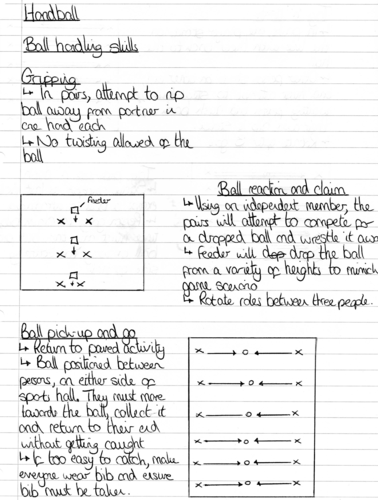 Handball
Ball handling skills
Gripping
↳ In pairs, attempt to rip
ball away from partner in
one hand each
↳ No twisting allowed of the
ball
Feeder
Ball reaction and claim
↳ Using an independent member, the
pairs will attempt to compete for
a dropped ball and wrestle it awa
↳ Feeder will drop the ball
from a variety of heights to mimich
game scenario
↳ Rotate roles between three people.
Ball pick-up and go
↳ Return to paired activity
↳ Ball positioned between
persons, on either side of
spots hall. They must move
towards the ball, collect it
and return to their end
without getting caught
↳ If too easy to catch, make
everyone wear bib and ensure
bib must be taken.